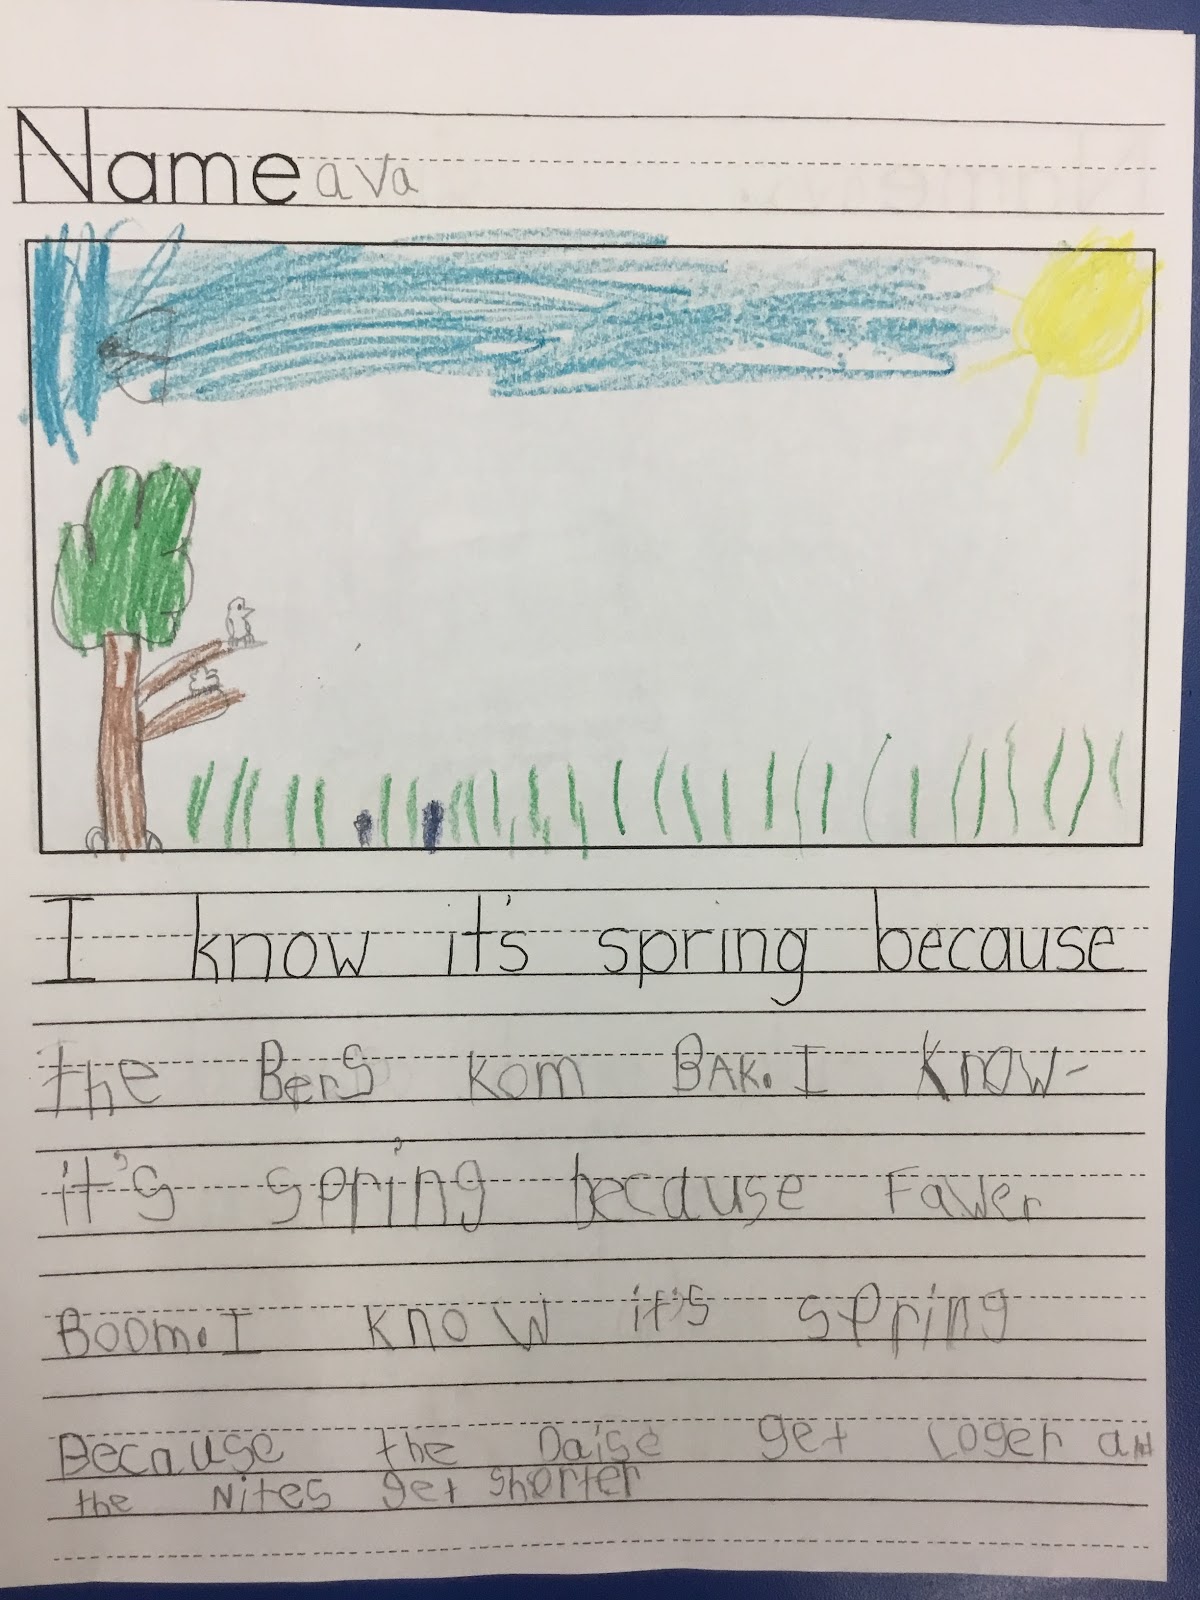 Name ava
I know it's spring because
the BerS kom BAK. I know-
it's spring because Fawer
Boom. I know it's spring
Because the Daise get Loger and
the Nites get shorter